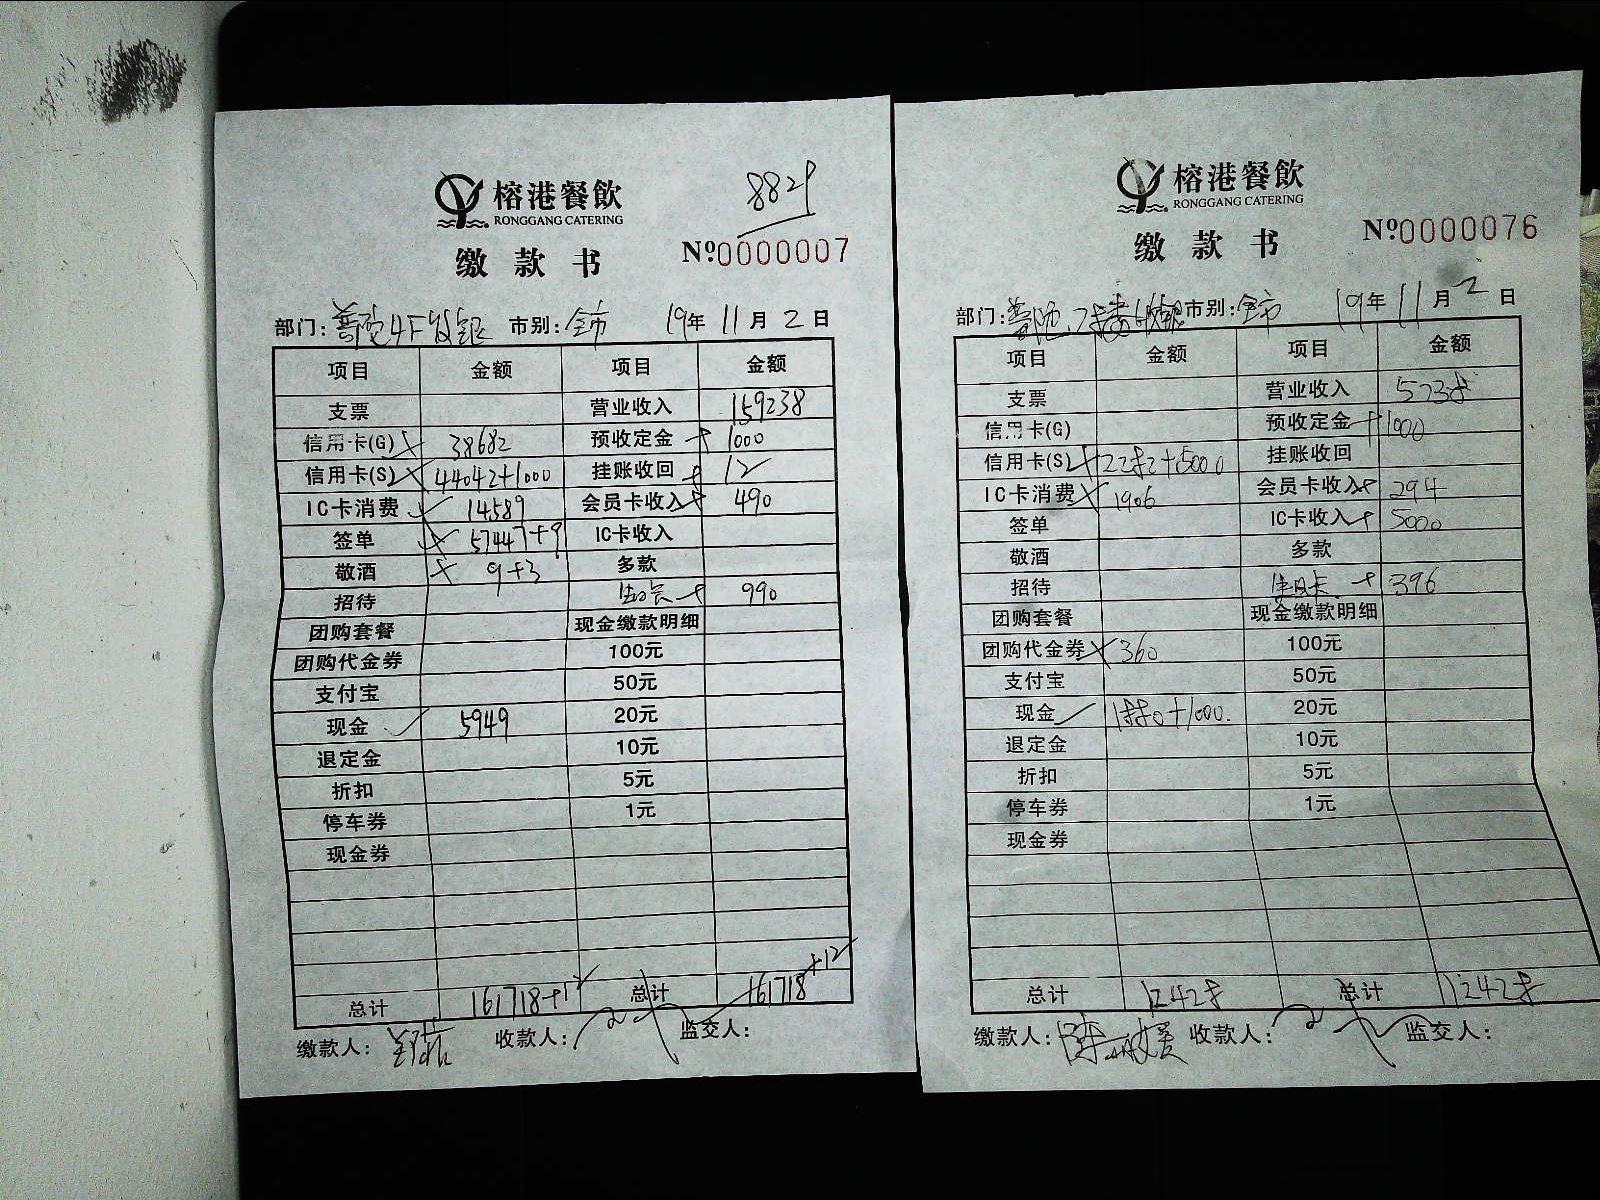 榕港餐飲
RONGGANG CATERING
8829
缴款书
№0000007
部门: 4F 市别:全市 19年 11月 2日
项目 金额 项目 金额
支票 营业收入 159238
信用卡(G) 38682 预收定金 1000
信用卡(S) 44042+1000 挂账收回 12
IC卡消费 14589 会员卡收入 490
签单 57447+9 IC卡收入
敬酒 9+3 多款
招待 990
团购套餐 现金缴款明细
团购代金券 100元
支付宝 50元
现金 5949 20元
退定金 10元
折扣 5元
停车券 1元
现金券
总计 161718+12 总计 161718+12
缴款人: 收款人: 监交人:
榕港餐飲
RONGGANG CATERING
缴款书
№0000076
部门: 市别:全市 19年 11月 2日
项目 金额 项目 金额
支票 营业收入 5738
信用卡(G) 预收定金 1000
信用卡(S) 2282+5000 挂账收回
IC卡消费 1906 会员卡收入 294
签单 IC卡收入 5000
敬酒 多款
招待 生日卡 396
团购套餐 现金缴款明细
团购代金券 360 100元
支付宝 50元
现金 1880+1000. 20元
退定金 10元
折扣 5元
停车券 1元
现金券
总计 12428 总计 12428
缴款人: 收款人: 监交人: